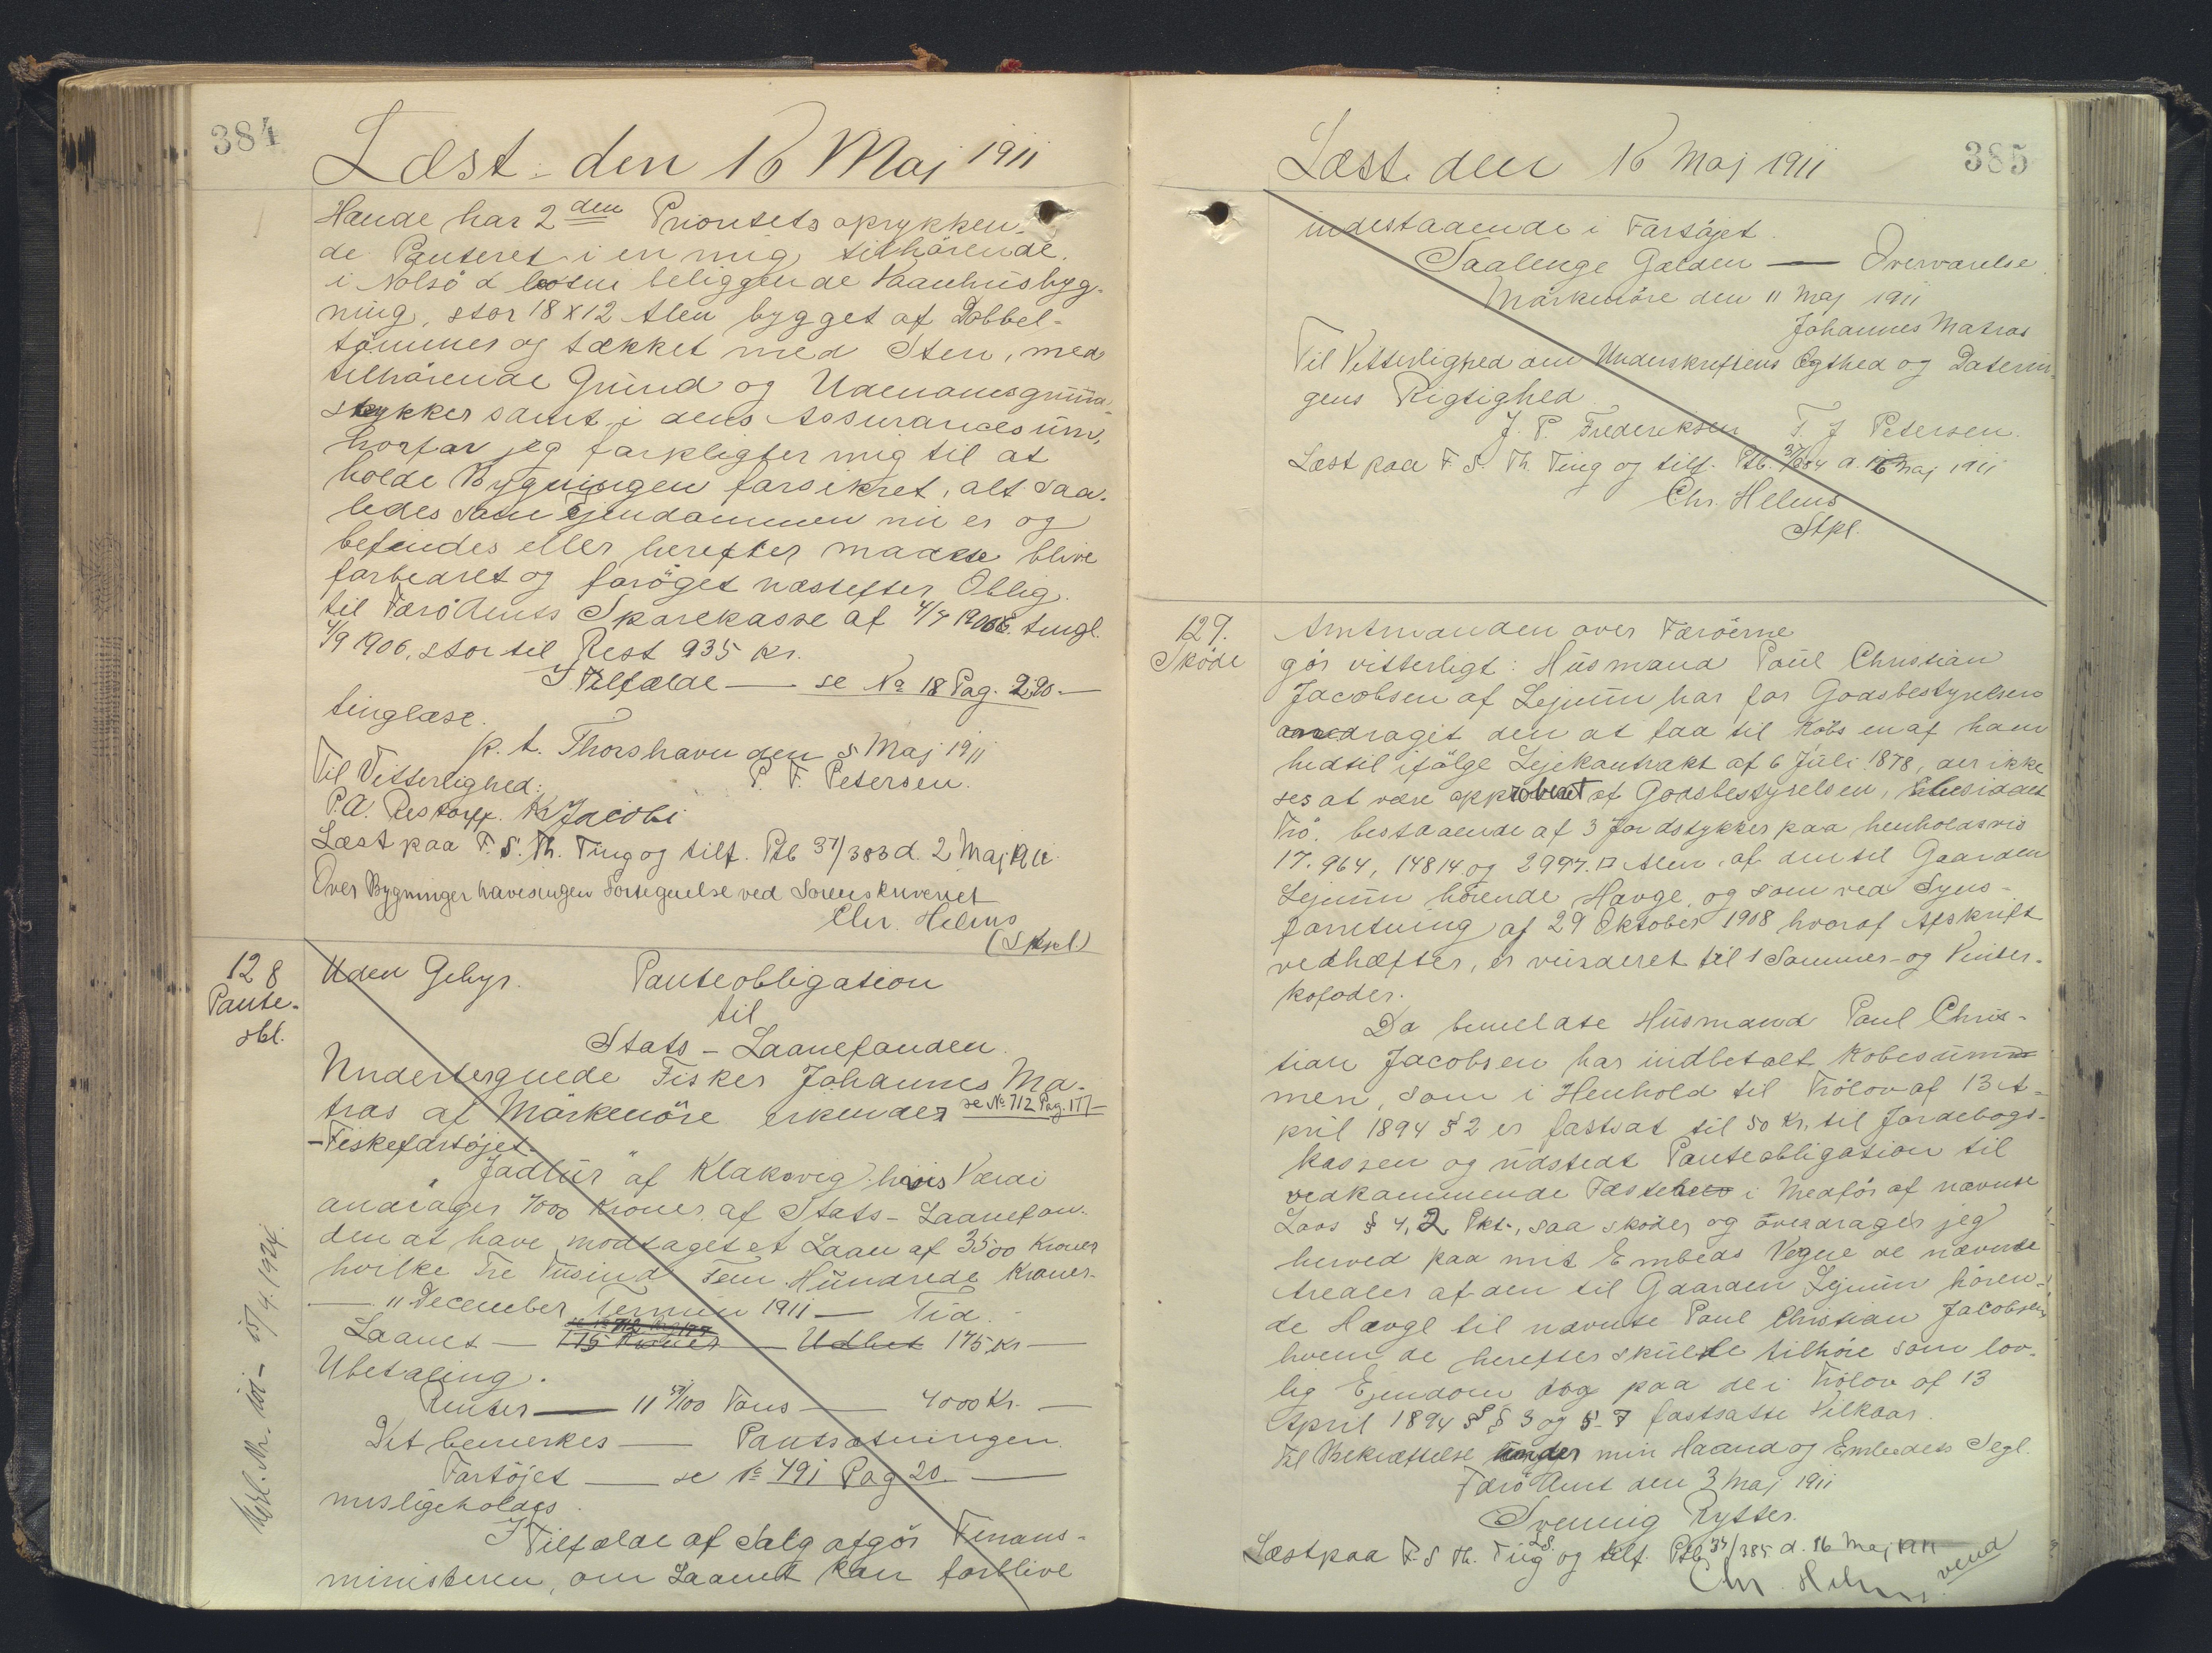 384
Læst den 16 Maj 1911
Hænde har 2den Prioritets oprykken-
de Panteret i en mig tilhörende
i Nolsö beliggende Vaanhusbyg-
ning, stor 18 x 12 Alen bygget af Dobbel-
tömmer og tækket med Sten, med
tilhörende Grund og Udenomsgrund-
stykker samt i dens Assurancesum,
hvorfor jeg forpligter mig til at
holde Bygningen forsikret, alt saa-
ledes som Ejendommen nu er og
befindes eller herefter maatte blive
forbedret og foröget næstefter Oblig.
til Færö Amts Sparekasse af 4/7 1906. tingl.
4/9 1906, stor til Rest 935 Kr.
I Tilfælde — se No 18 Pag. 220 —
tinglæse.
p. t. Thorshavn den 5 Maj 1911
P. F. Petersen.
Til Vitterlighed:
P.A. Restorff. K Jacobi
Læst paa F. S. Th. Ting og tilf. Ptb 37/383 d. 2 Maj 1911.
Over Bygninger haves ingen Fortegnelse ved Sorenskriveriet
Chr. Helms
(Stpl)
128
Pante-
obl.
Uden Gebyr. Panteobligation
til
Stats - Laanefonden.
Undertegnede Fisker Johannes Ma-
tras af Mørkenöre erkender se No 712 Pag. 177 —
- Fiskefartöjet
"Jadlur" af Klaksvig hvis Værdi
andrager 7000 Kroner af Stats - Laanefon-
den at have modtaget et Laan af 3500 Kroner
hvilke Tre Tusind Fem Hundrede Kroner —
— 11 December Termin 1911 — Tid.
se No 712 Pag 177
Laanet — 175 Kroner — Udbet 175 Kr —
Ubetaling.
Renter — 11 /100 Tons — 4000 Kr. —
Det bemerkes — Pantsætningen.
Fartöjet — se No 491 Pag 20 —
misligeholdes.
I Tilfælde af Salg afgör Finans-
ministeren, om Laanet kan forblive
385
Læst den 16 Maj 1911
indestaaende i Fartöjet.
Saalenge Gælden — Overværelse
Mørkenöre den 11 Maj 1911
Johannes Matras
Til Vitterlighed om Underskriftens Ægthed og Daterin-
gens Rigtighed
J. P. Frederiksen F. J Petersen.
Læst paa F. S. Th. Ting og tilf. Ptb. 37/384 d. 16 Maj 1911
Chr. Helms
Stpl.
129.
Sköde
Amtmanden over Færöerne
gör vitterligt: Husmand Poul Christian
Jacobsen af Lejnum har for Godsbestyrelsen
andraget den at faa til Köbs en af ham
hidtil ifölge Lejekontrakt af 6 Juli 1878, der ikke
ses at være approberet af Godsbestyrelsen,
Trö, bestaaende af 3 Jordstykker paa henholdsvis
17.964, 14814 og 2997. □ Alen, af den til Gaarden
Lejnum hörende Hauge, og som ved Syns-
forretning af 29 Oktober 1908 hvoraf Afskrift
vedhæfter, er vurderet til 1 Sommer- og Vinter-
kofoder.
Da bemeldte Husmand Poul Chris-
tian Jacobsen har indbetalt Kobesum
men, som i Henhold til Trölov af 13 A-
pril 1894 § 2 er fastsat til 50 Kr. til Jordebogs-
kassen og udstedt Panteobligation til
vedkommende Fæster i Medför af nævnte
Lovs § 4, 2 Pkt., saa sköder og overdrager jeg
herved paa mit Embeds Vegne de nævnte
Arealer af den til Gaarden Lejnum hören-
de Havge til nævnte Poul Christian Jacobsen,
hvem de herefter skulde tilhöre som lov-
lig Ejendom dog paa de i Trölov af 13
April 1894 § § 3 og 5-7 fastsatte Vilkaar.
Til Bekræftelse under min Haand og Embedets Segl.
Færö Amt den 3 Maj 1911
Svenning Rytter.
L.S.
Læst paa F. S Th. Ting og tilf. Ptb 37/385 d. 16 Maj 1911
Chr. Helms
vend